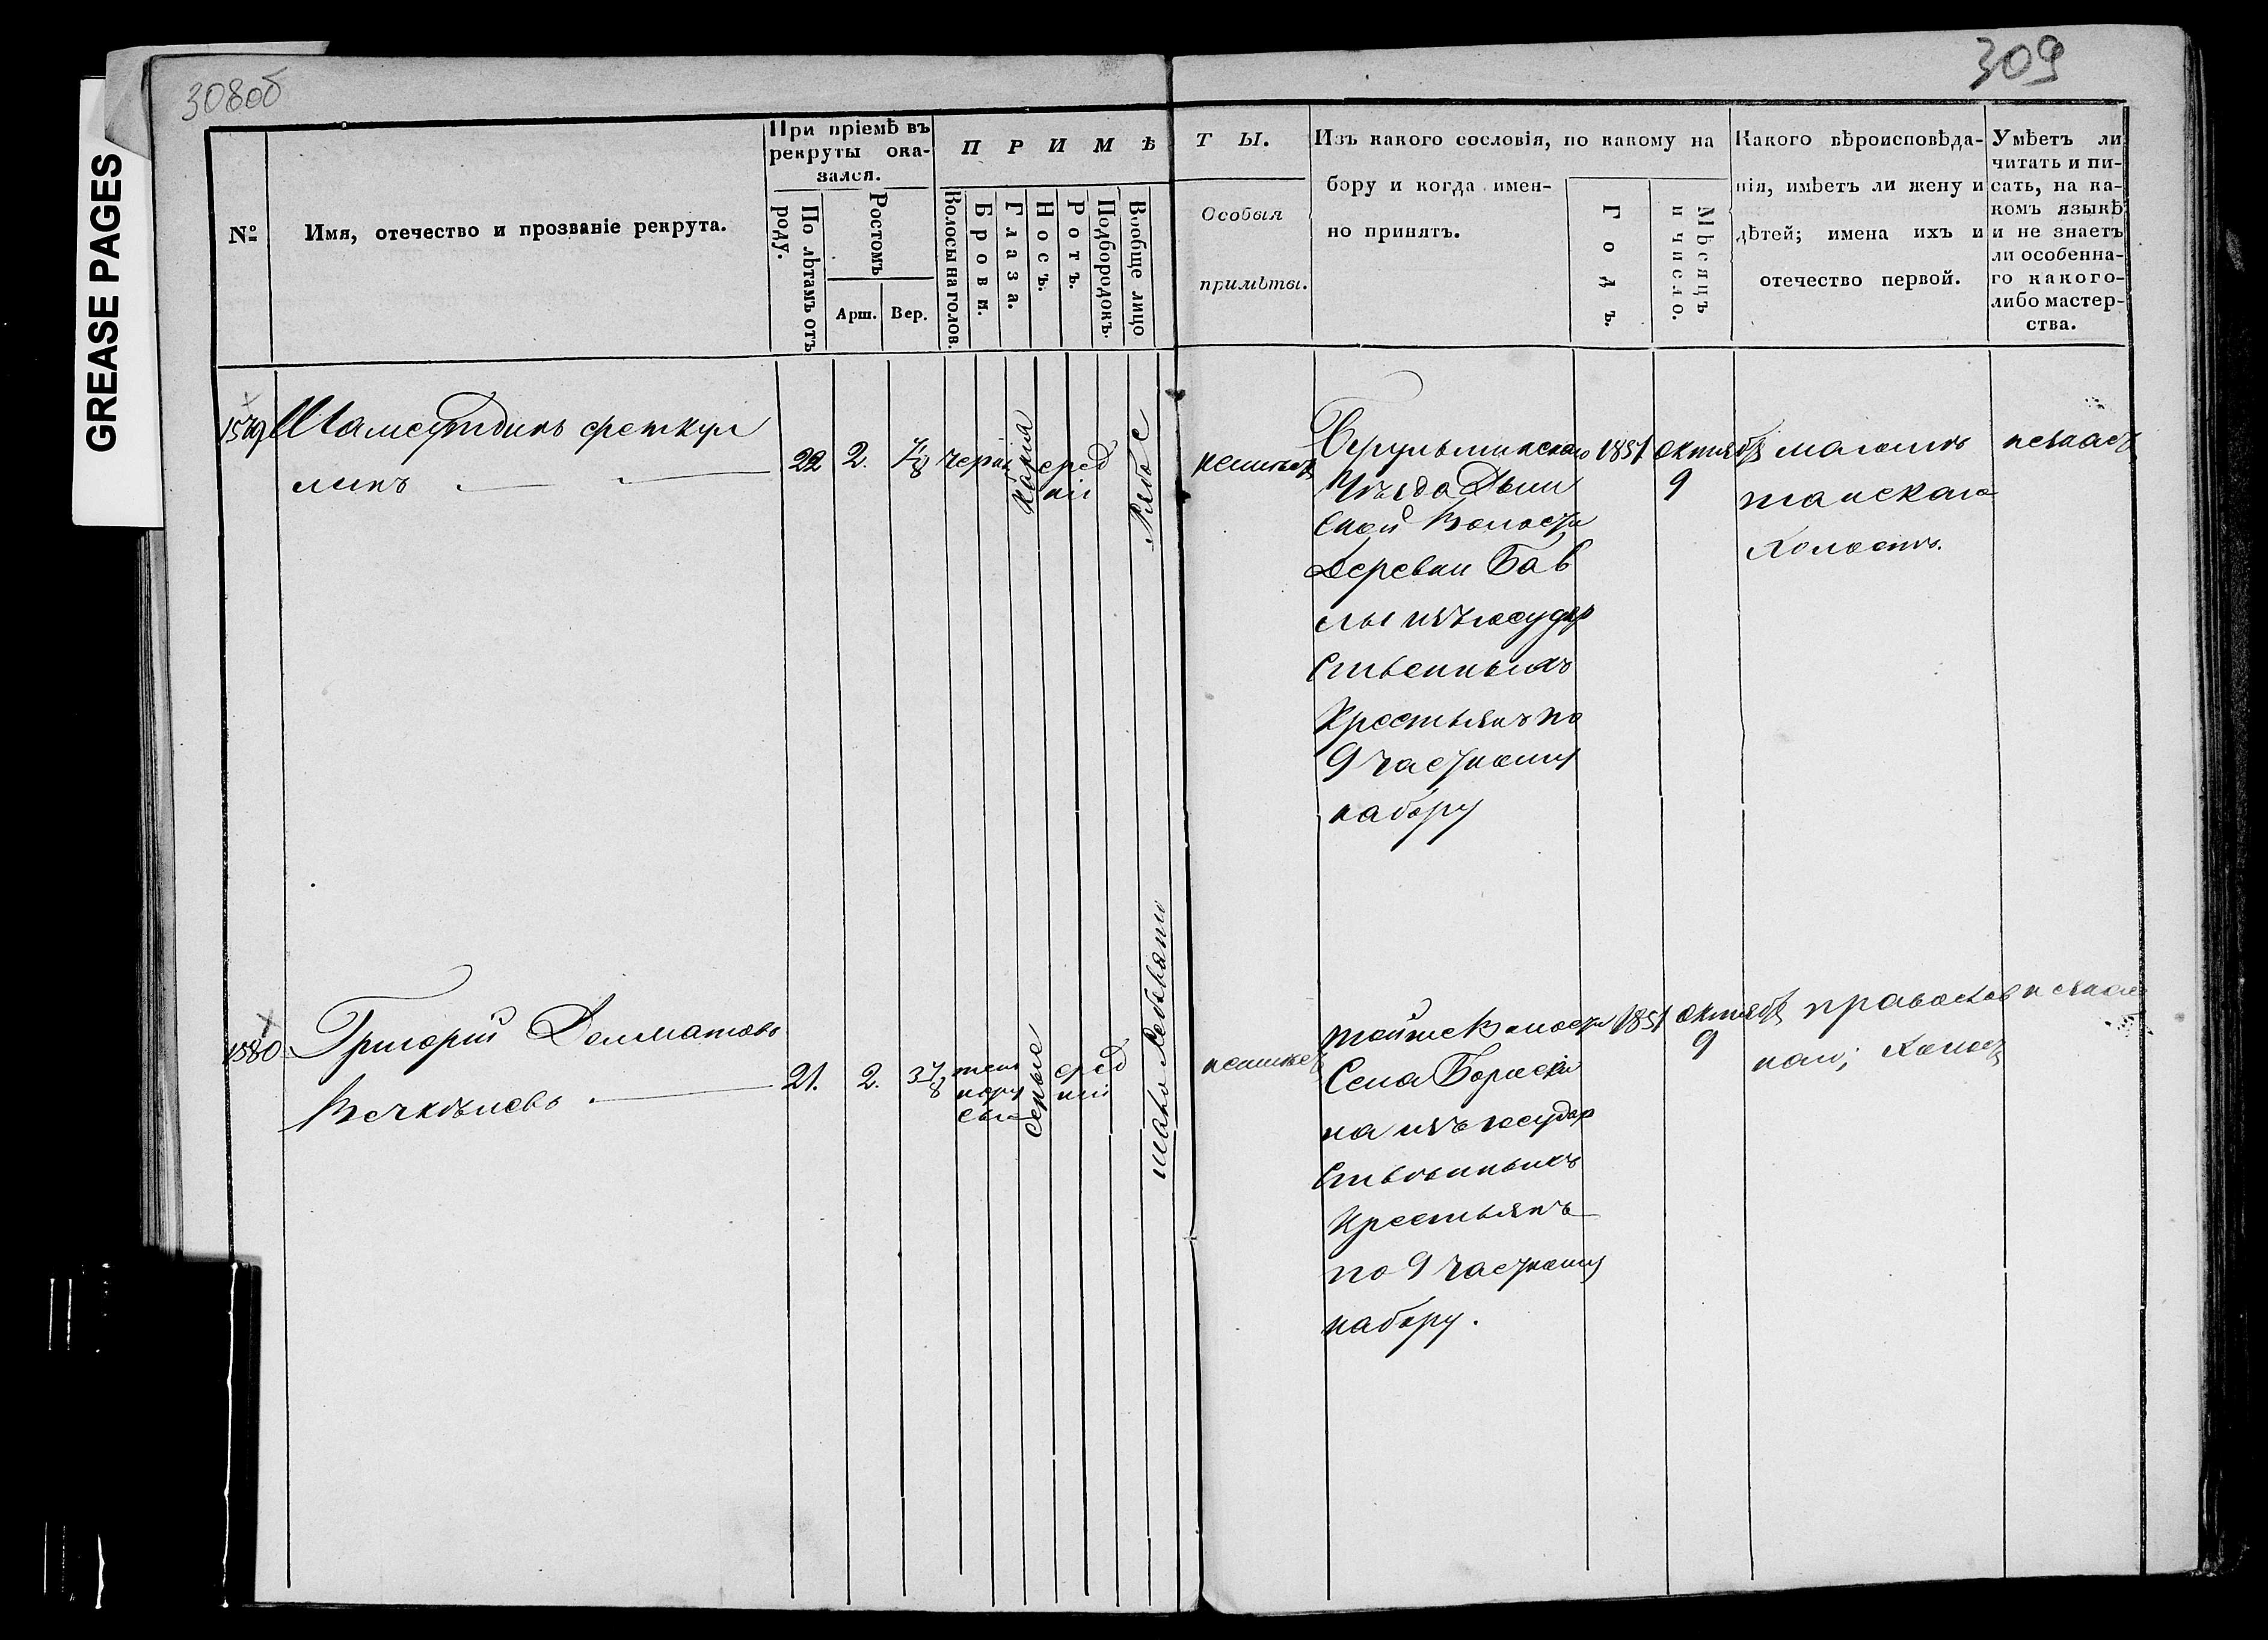 308об
309
GREASE PAGES
№
Имя, отечество и прозваніе рекрута.
При пріемѣ въ
рекруты ока-
зался.
По лѣтамъ отъ
роду.
Ростомъ
Арш.
Вер.
П Р И М Ѣ
Волосы на голов.
Брови.
Глаза.
Носъ.
Ротъ.
Подбородокъ.
Вообще лицо
Т Ы.
Особыя
примѣты.
Изъ какого сословія, по какому на
бору и когда имен-
но принятъ.
Годъ.
Мѣсяцъ
и число.
Какого вѣроисповѣда-
нія, имѣетъ ли жену и
дѣтей; имена ихъ и
отечество первой.
Умѣетъ ли
читать и пи-
сать, на ка-
комъ языкѣ
и не знаетъ
ли особенна-
го какого-
либо мастер-
ства.
1579
Шамсутдинъ
линъ
22
2.
7/8
черн
карія
сред
ніи
Рябое
неимѣетъ
Бугульминскаго
Уѣзда Дым
ской Волости
Деревни Бав
лы изъ государ
ственныхъ
Крестьянъ по
9 частному
набору
1851
октября
9
магоме
танскаго
Холостъ.
незнаетъ
1580
Григорій Долматовъ
21.
2.
3 7/8
темно
русы
серые
сред
ніи
мало
неимѣетъ
тойже Волости
Села
на изъ государ
ственныхъ
Крестьянъ
по 9 частному
набору.
1851
октября
9
православ
наго; Холостъ
незнаетъ